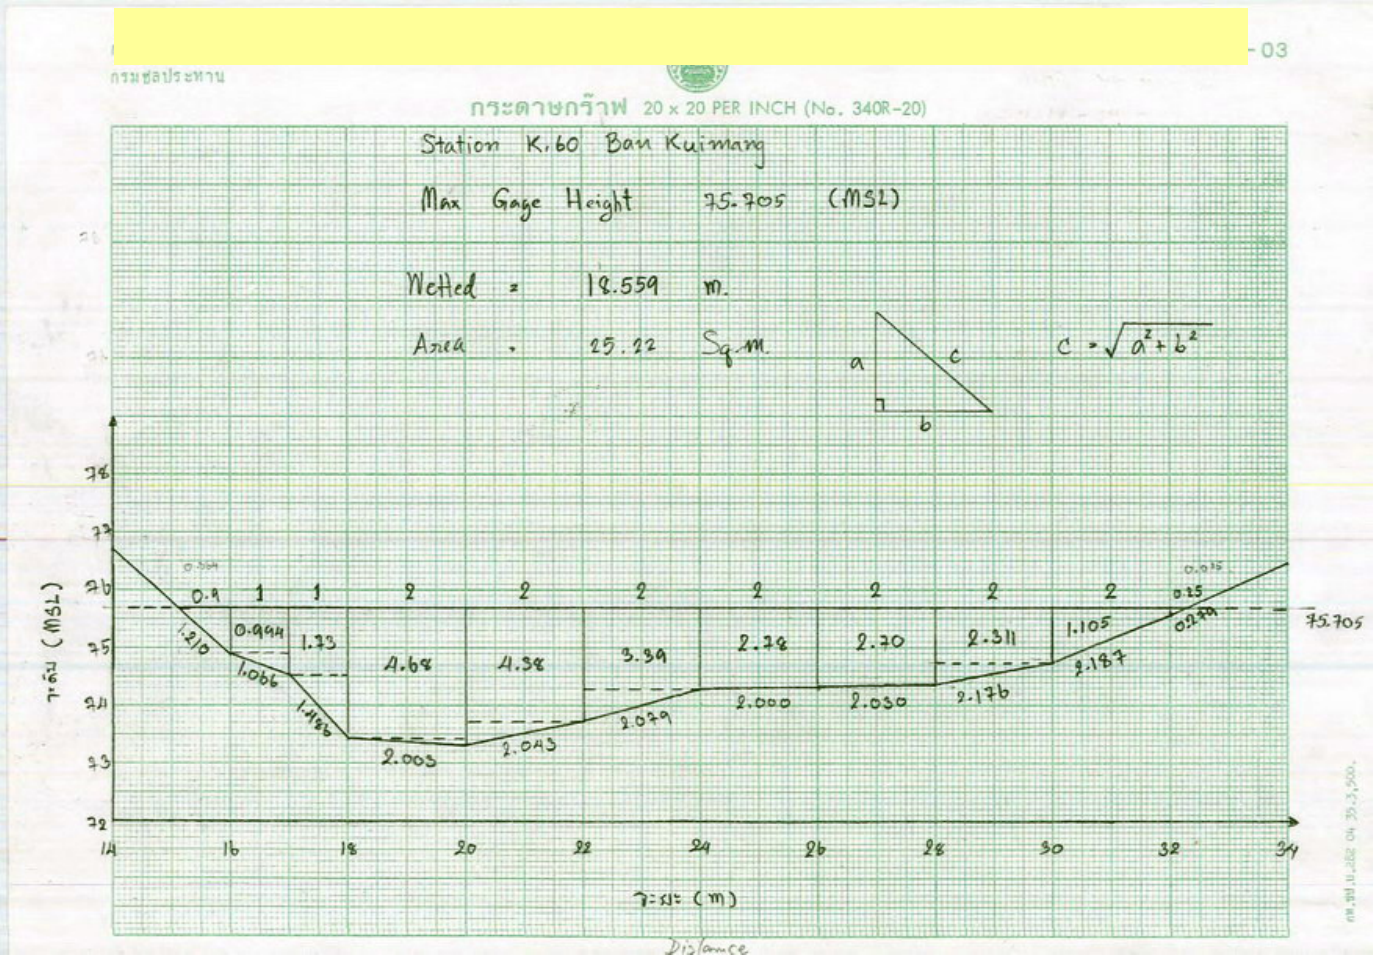 - 03
กรมชลประทาน
กระดาษกร๊าฟ 20 x 20 PER INCH (No. 340R-20)
Station K.60 Ban Kuimang
Max Gage Height 75.705 (MSL)
Wetted = 18.559 m.
Area = 25.22 Sq.m.
a
c
b
c = √a²+b²
78
77
76
75
74
73
72
ระดับ (MSL)
0.9 1 1 2 2 2 2 2 2 2 0.25
0.994 1.73 4.68 4.38 3.39 2.78 2.70 2.311 1.105
75.705
1.210 1.066 1.486 2.003 2.043 2.079 2.000 2.030 2.176 2.187 0.279
14 16 18 20 22 24 26 28 30 32 34
ระยะ (m)
Distance